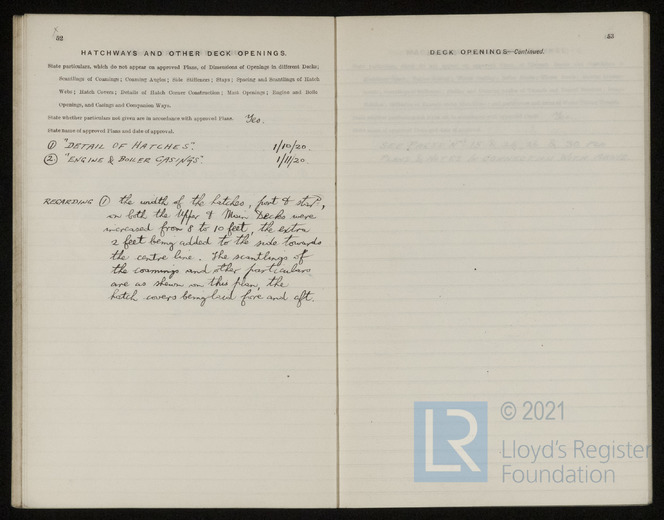 52
HATCHWAYS AND OTHER DECK OPENINGS.
State particulars, which do not appear on approved Plans, of Dimensions of Openings in different Decks;
Scantlings of Coamings; Coaming Angles; Side Stiffeners; Stays; Spacing and Scantlings of Hatch
Webs; Hatch Covers; Details of Hatch Corner Construction; Mast Openings; Engine and Boiler
Openings, and Casings and Companion Ways.
State whether particulars not given are in accordance with approved Plans. Yes.
State name of approved Plans and date of approval.
① "DETAIL OF HATCHES". 1/10/20.
② "ENGINE & BOILER CASINGS" 1/11/20.
REGARDING ① the width of the hatches, port & starᵈ,
on both the Upper & Main Decks were
increased from 8 to 10 feet, the extra
2 feet being added to the side towards
the centre line. The scantlings of
the coamings and other particulars
are as shewn on this plan, the
hatch covers being laid fore and aft.
53
DECK OPENINGS—Continued.
LR
© 2021
Lloyd's Register
Foundation